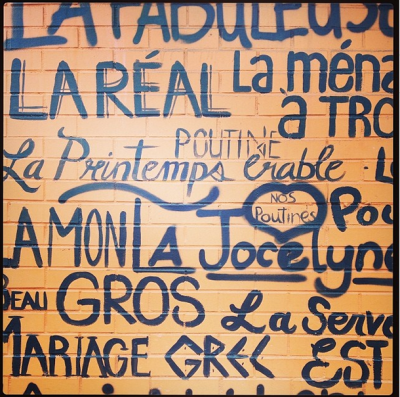 LA FABULEUSE
LA RÉAL La ména
à TRO
POUTINE
La Printemps érable · L
NOS
Poutines
Pou
LA MON LA Jocelyne
BEAU GROS La Serve
MARIAGE GREC EST